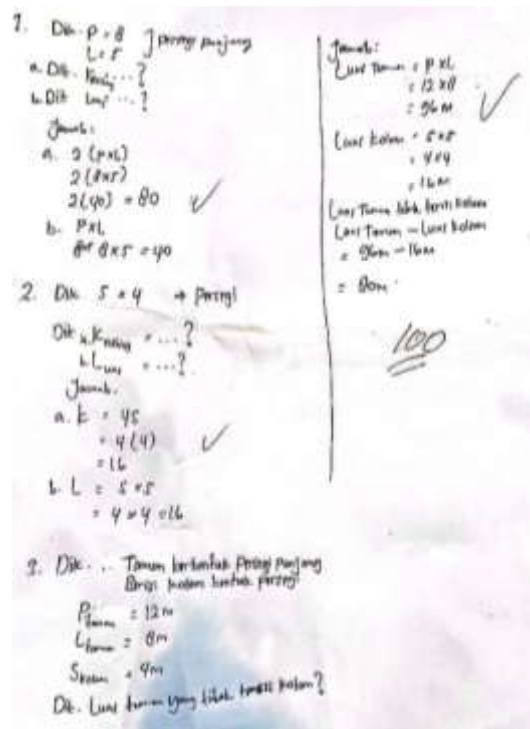 1. Dik. P = 8
L = 5
] persegi panjang
a. Dit. Keliling ... ?
b. Dit Luas ... ?
Jawab:
a. 2 (PxL)
2 (8x5)
2(40) = 80
b. PxL
8x5 = 40
2. Dik S = 4 → Persegi
Dit a. Keliling = ... ?
b. Luas = ... ?
Jawab.
a. k = 4S
= 4(4)
= 16
b. L = S x S
= 4 x 4 = 16
3. Dik. .. Taman berbentuk Persegi Panjang
Berisi kolam bentuk persegi
P taman = 12 m
L taman = 8m
S kolam = 4m
Dit. Luas taman yang tidak berisi kolam?
Jawab:
Luas Taman = P x L
= 12 x 8
= 96 m
Luas kolam = S x S
= 4 x 4
= 16 m
Luas Taman tidak berisi kolam
Luas Taman - Luas kolam
= 96m - 16m
= 80m
100